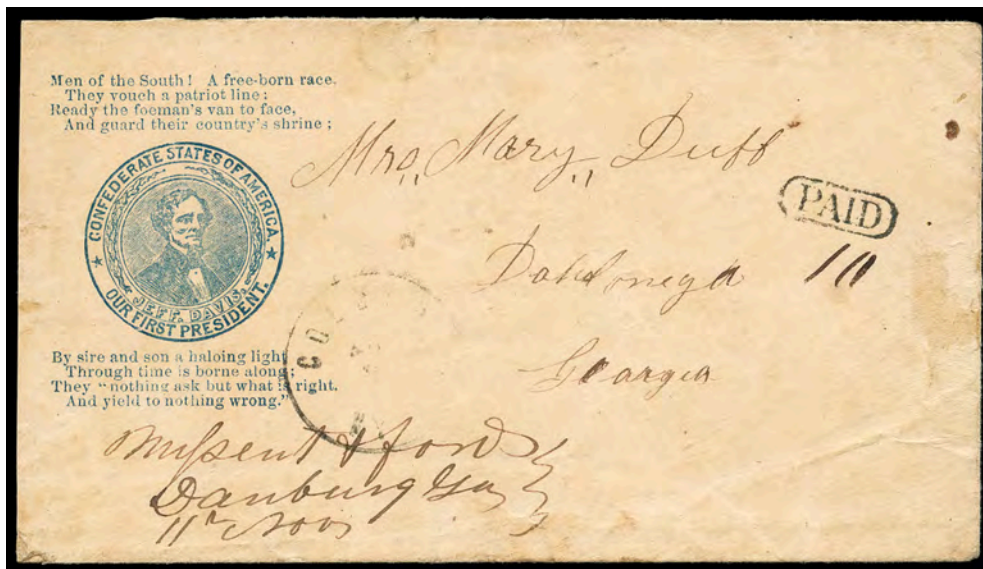 Men of the South! A free-born race.
They vouch a patriot line;
Ready the foeman's van to face,
And guard their country's shrine;
CONFEDERATE STATES OF AMERICA.
JEFF. DAVIS,
OUR FIRST PRESIDENT.
By sire and son a haloing light
Through time is borne along;
They "nothing ask but what is right.
And yield to nothing wrong."
Mrs, Mary, Duff
PAID
Dahlonega 10
Georgia
Missent & ford
Danburg Ga
11th Nov